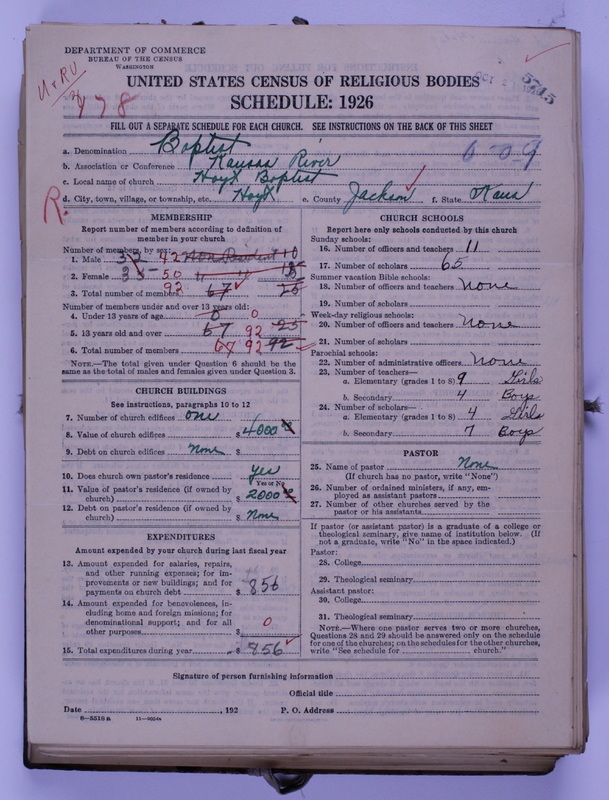 DEPARTMENT OF COMMERCE
BUREAU OF THE CENSUS
WASHINGTON
UNITED STATES CENSUS OF RELIGIOUS BODIES
SCHEDULE: 1926
5745
478
FILL OUT A SEPARATE SCHEDULE FOR EACH CHURCH. SEE INSTRUCTIONS ON THE BACK OF THIS SHEET
a. Denomination Baptist
6-09
b. Association or Conference Kansas River
c. Local name of church Hoyt Baptist
d. City, town, village, or township, etc. Hoyt e. County Jackson f. State Kans
R.
MEMBERSHIP
Report number of members according to definition of member in your church
Number of members, by sex:
1. Male 32 42 Non Resident 10
2. Female 35 50 " " 15
3. Total number of members 92 67 25
Number of members under and over 13 years old:
4. Under 13 years of age 0 0
5. 13 years old and over 67 92 25
6. Total number of members 67 92 92
NOTE.—The total given under Question 6 should be the same as the total of males and females given under Question 3.
CHURCH BUILDINGS
See instructions, paragraphs 10 to 12
7. Number of church edifices one
8. Value of church edifices $ 4000
9. Debt on church edifices none $
10. Does church own pastor's residence yes
Yes or No
11. Value of pastor's residence (if owned by church) $ 2000
12. Debt on pastor's residence (if owned by church) $ none
EXPENDITURES
Amount expended by your church during last fiscal year
13. Amount expended for salaries, repairs, and other running expenses; for improvements or new buildings; and for payments on church debt $ 856
14. Amount expended for benevolences, including home and foreign missions; for denominational support; and for all other purposes $ 0
15. Total expenditures during year $ 856
CHURCH SCHOOLS
Report here only schools conducted by this church
Sunday schools:
16. Number of officers and teachers 11
17. Number of scholars 65
Summer vacation Bible schools:
18. Number of officers and teachers none
19. Number of scholars
Week-day religious schools:
20. Number of officers and teachers none
21. Number of scholars
Parochial schools:
22. Number of administrative officers none
23. Number of teachers—
a. Elementary (grades 1 to 8) 9 Girls
b. Secondary 4 Boys
24. Number of scholars—
a. Elementary (grades 1 to 8) 4 Girls
b. Secondary 7 Boys
PASTOR
25. Name of pastor None
(If church has no pastor, write "None")
26. Number of ordained ministers, if any, employed as assistant pastors
27. Number of other churches served by the pastor or his assistants
If pastor (or assistant pastor) is a graduate of a college or theological seminary, give name of institution below. (If not a graduate, write "No" in the space indicated.)
Pastor:
28. College
29. Theological seminary
Assistant pastor:
30. College
31. Theological seminary
NOTE.—Where one pastor serves two or more churches, Questions 28 and 29 should be answered only on the schedule for one of the churches; on the schedules for the other churches, write "See schedule for church."
Signature of person furnishing information
Official title
Date , 192 P. O. Address
8—5518a 11—9034a